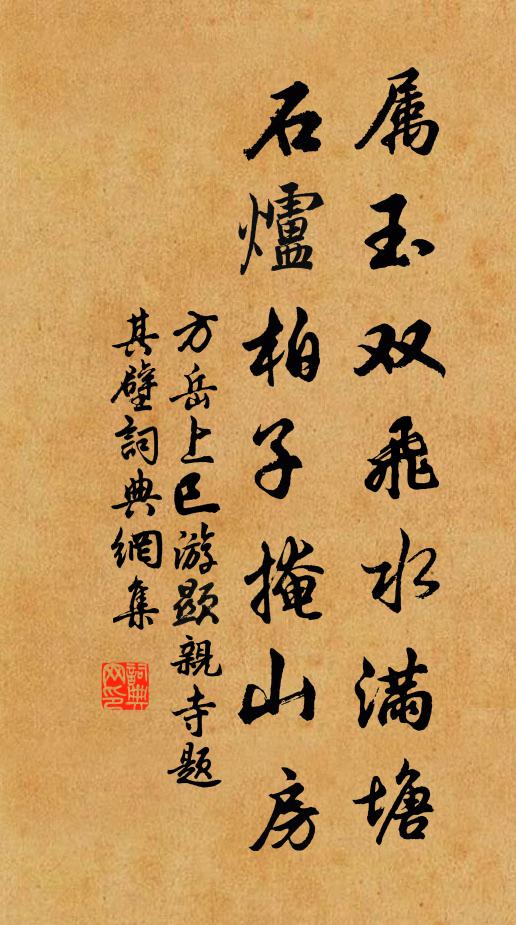 属玉双飛水满塘
石爐柏子掩山房
方岳上巳游顕親寺题
其壁詞典網集
詞典网印